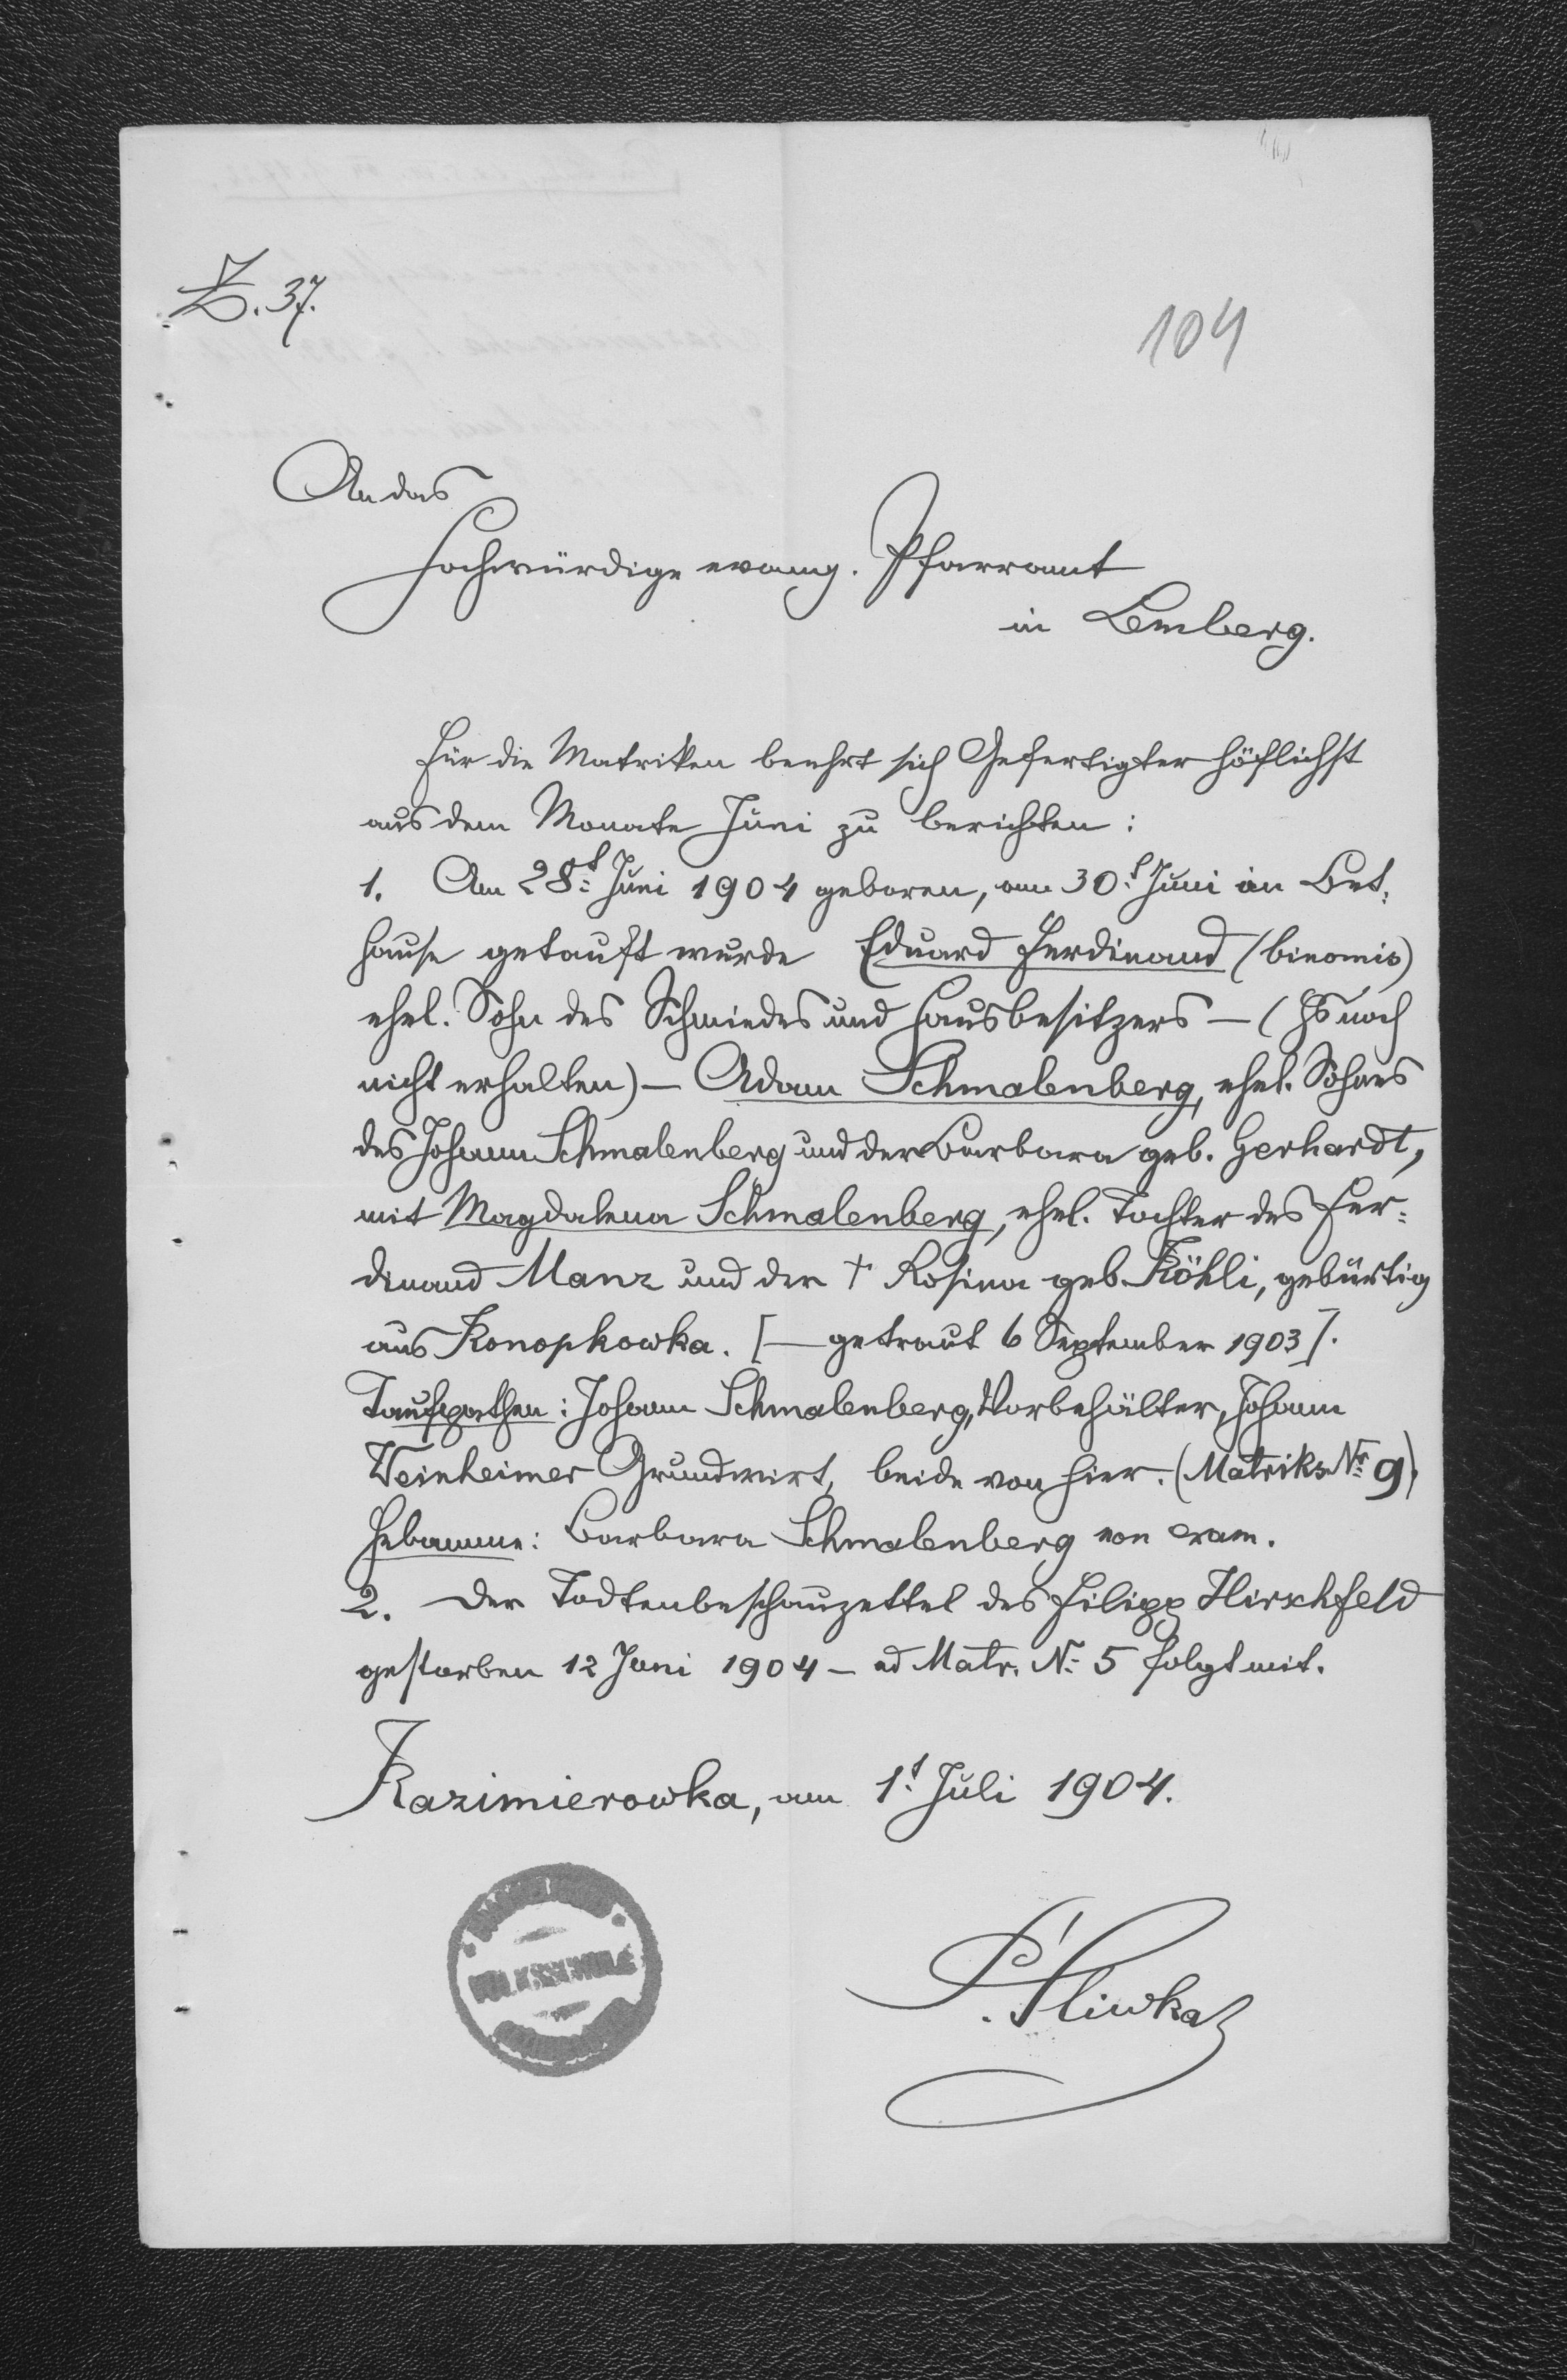 Z. 37.
104
An das
Hochwürdige evang. Pfarramt
in Lemberg.
Für die Matriken beehrt sich Gefertigter höflichst
aus dem Monate Juni zu berichten:
1. Am 28t Juni 1904 geboren, am 30t Juni im Bet-
hause getauft wurde Eduard Ferdinand (binomis)
ehel. Sohn des Schmiedes und Hausbesitzers – (HS noch
nicht erhalten) – Adam Schmalenberg, ehel. Sohnes
des Johann Schmalenberg und der Barbara geb. Gerhardt,
mit Magdalena Schmalenberg, ehel. Tochter des Fer-
dinand Manz und der † Rosina geb. Köhli, gebürtig
aus Konopkowka. [– getraut 6 September 1903].
Taufpathen: Johann Schmalenberg, Vorbehälter, Johann
Weinheimer Grundwirt, beide von hier. (Matriks Nr 9)
Hebamme: Barbara Schmalenberg von exam.
2. Der Todtenbeschauzettel des Filipp Hirschfeld
gestorben 12 Juni 1904 – ad Matr. N. 5 folgt mit.
Kazimierowka, am 1t Juli 1904.
VOLKSSCHULE
Sliwka